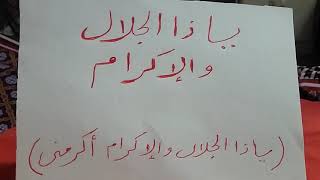 يا ذا الجلال
والإكرام
(يا ذا الجلال والإكرام أكرمنى)